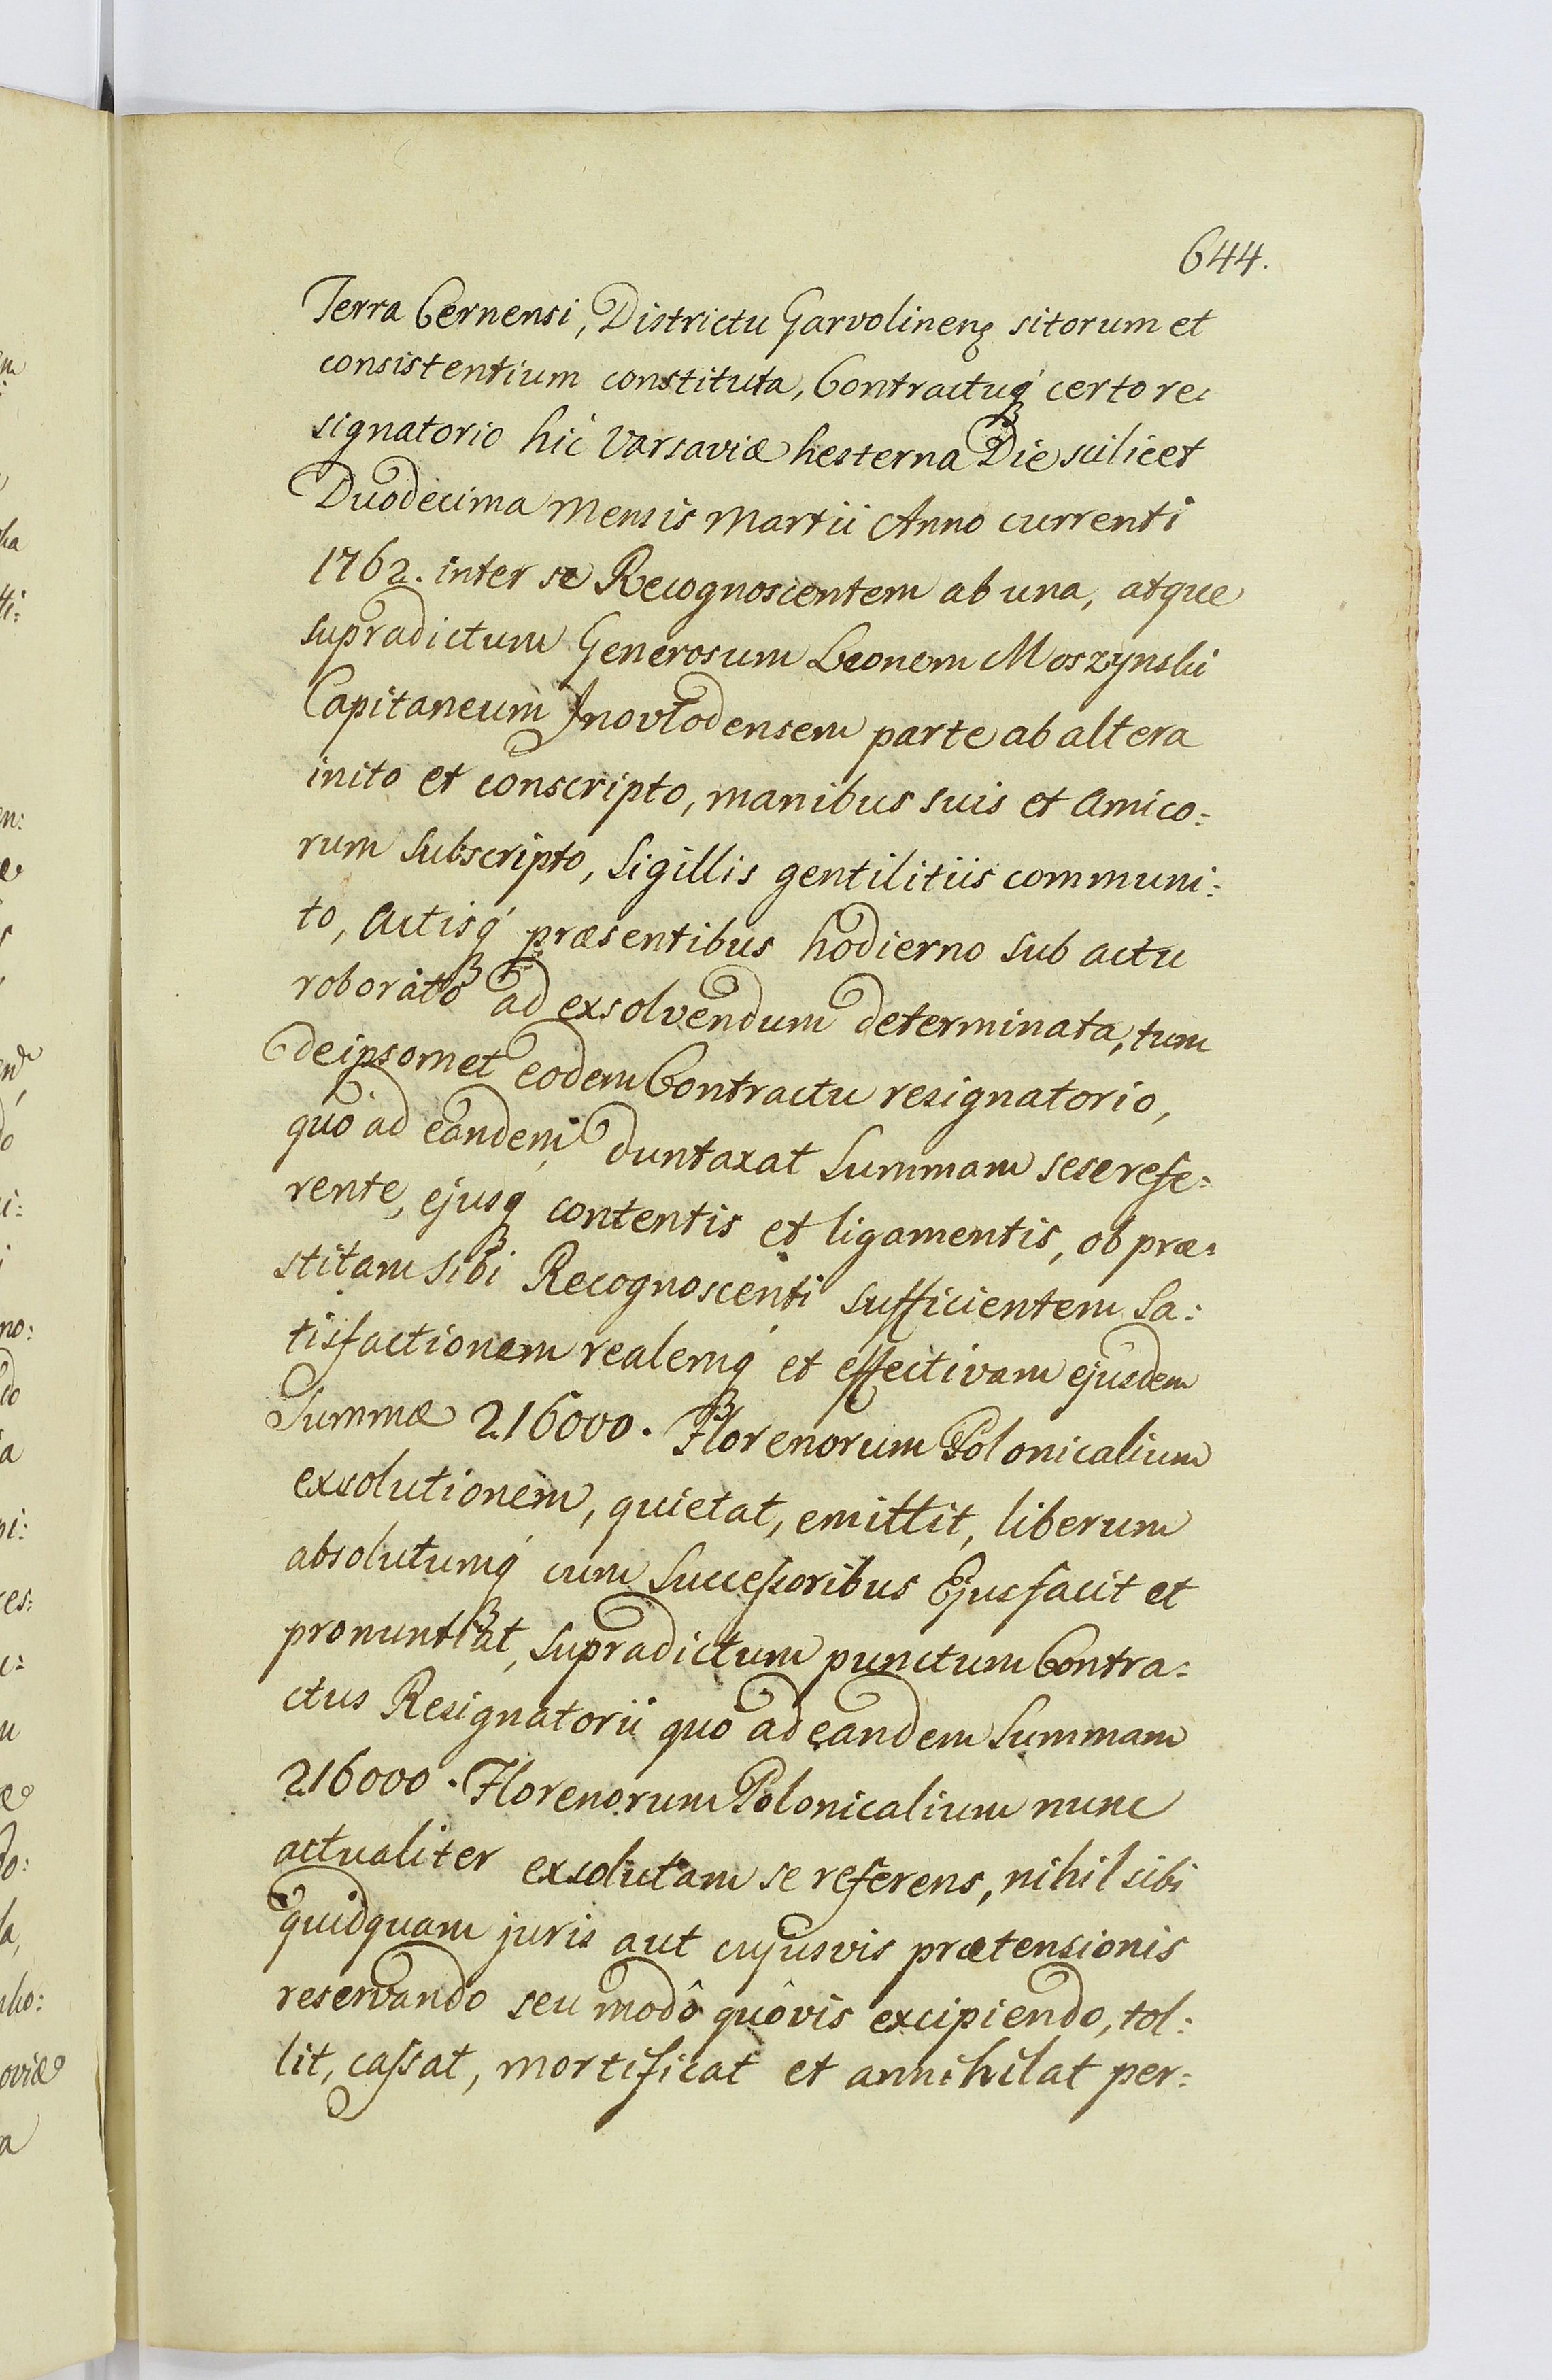 644.
Terra Cernensi, Districtu Garvolinens sitorum et
consistentium constituta, Contractuq́ certo re:
signatorio hic Varsaviæ hesterna Die scilicet
Duodecima Mensis Martii Anno currenti
1762. inter se Recognoscentem ab una, atque
supradictum Generosum Leonem Moszynski
Capitaneum Inovłodensem parte ab altera
inito et conscripto, manibus suis et Amico:
rum subscripto, Sigillis gentilitiis communi:
to, Actisq́ præsentibus hodierno sub actu
roborato ad exsolvendum determinata, tum
de ipsomet eodem Contractu resignatorio,
quo ad eandem duntaxat Summam sese refe:
rente, ejusq contentis et ligamentis, ob præ:
stitam sibi Recognoscenti sufficientem Sa:
tisfactionem realemq́ et effectivam ejusdem
Summæ 216000. Florenorum Polonicalium
exsolutionem, quietat, emittit, liberum
absolutumq́ cum Successoribus Ejus facit et
pronuntiat, supradictum punctum Contra:
ctus Resignatorii quo ad eandem Summam
216000. Florenorum Polonicalium nunc
actualiter exsolutam se referens, nihil sibi
quidquam juris aut cujusvis prætensionis
reservando seu modô quôvis excipiendo, tol:
lit, cassat, mortificat et annihilat per: